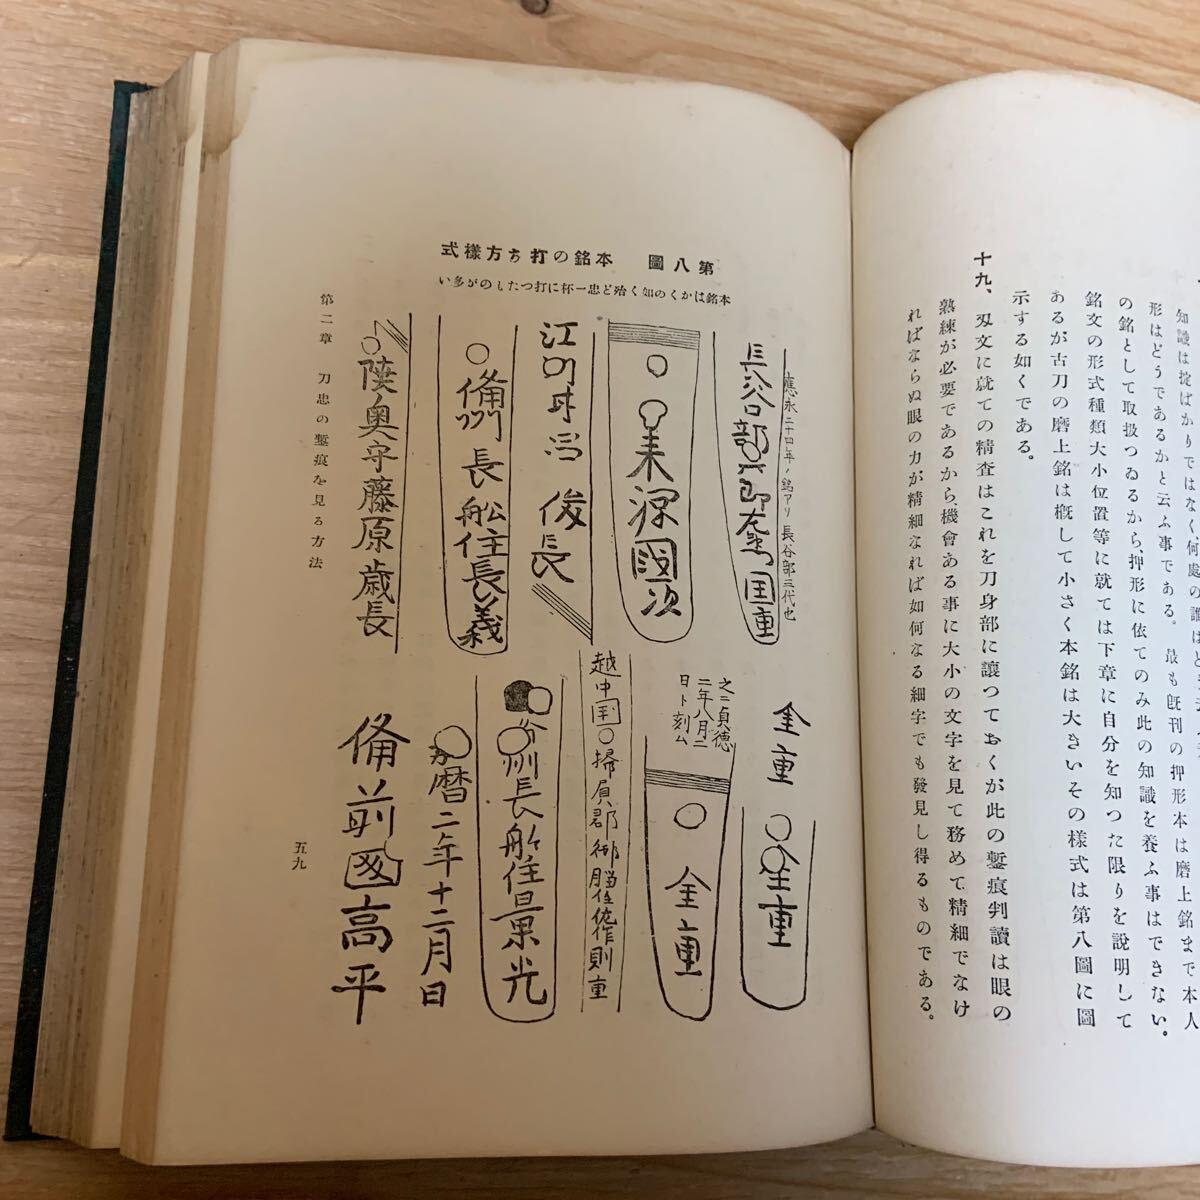 知識は掟ばかりではなく何處の誰は
形はどうであるかと云ふ事である。最も既刊の押形本は磨上銘まで本人
の銘として取扱つゐるから、押形に依てのみ此の知識を養ふ事はできない。
銘文の形式種類大小位置等に就ては下章に自分を知つた限りを説明して
あるが古刀の磨上銘は概して小さく本銘は大きいその様式は第八圖に圖
示する如くである。
十九、刄文に就ての精査はこれを刀身部に讓つておくが此の鏨痕判讀は眼の
熟練が必要であるから、機會ある事に大小の文字を見て務めて精細でなけ
ればならぬ眼の力が精細なれば如何なる細字でも發見し得るものである。
第八圖 本銘の打ち方樣式
本銘はかくの如く殆ど忠一杯に打つたものが多い
應永二十四年ノ銘アリ 長谷部三代也
長谷部六郎左 国重
来源國次
江州甘呂 俊長
備州長船住長義
陸奥守藤原歳長
金重
金重
之ニ貞徳
二年八月二
日ト刻ム
金重
越中国 婦負郡御服住佐伯則重
州長船住景光
暦二年十二月日
備前國高平
第二章 刀忠の鏨痕を見る方法
五九